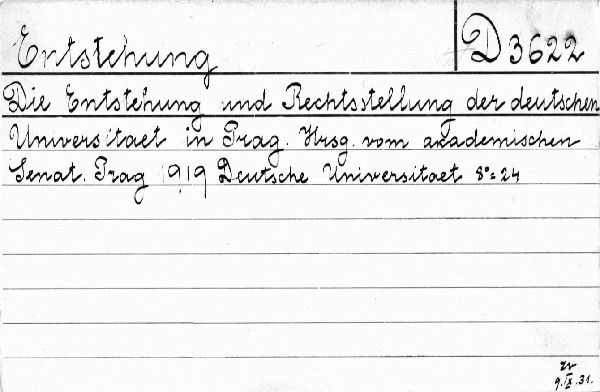 Entstehung D 3622
Die Entstehung und Rechtsstellung der deutschen
Universitaet in Prag. Hrsg. vom akademischen
Senat. Prag 1919 Deutsche Universitaet 8°= 24
9.IX.31.